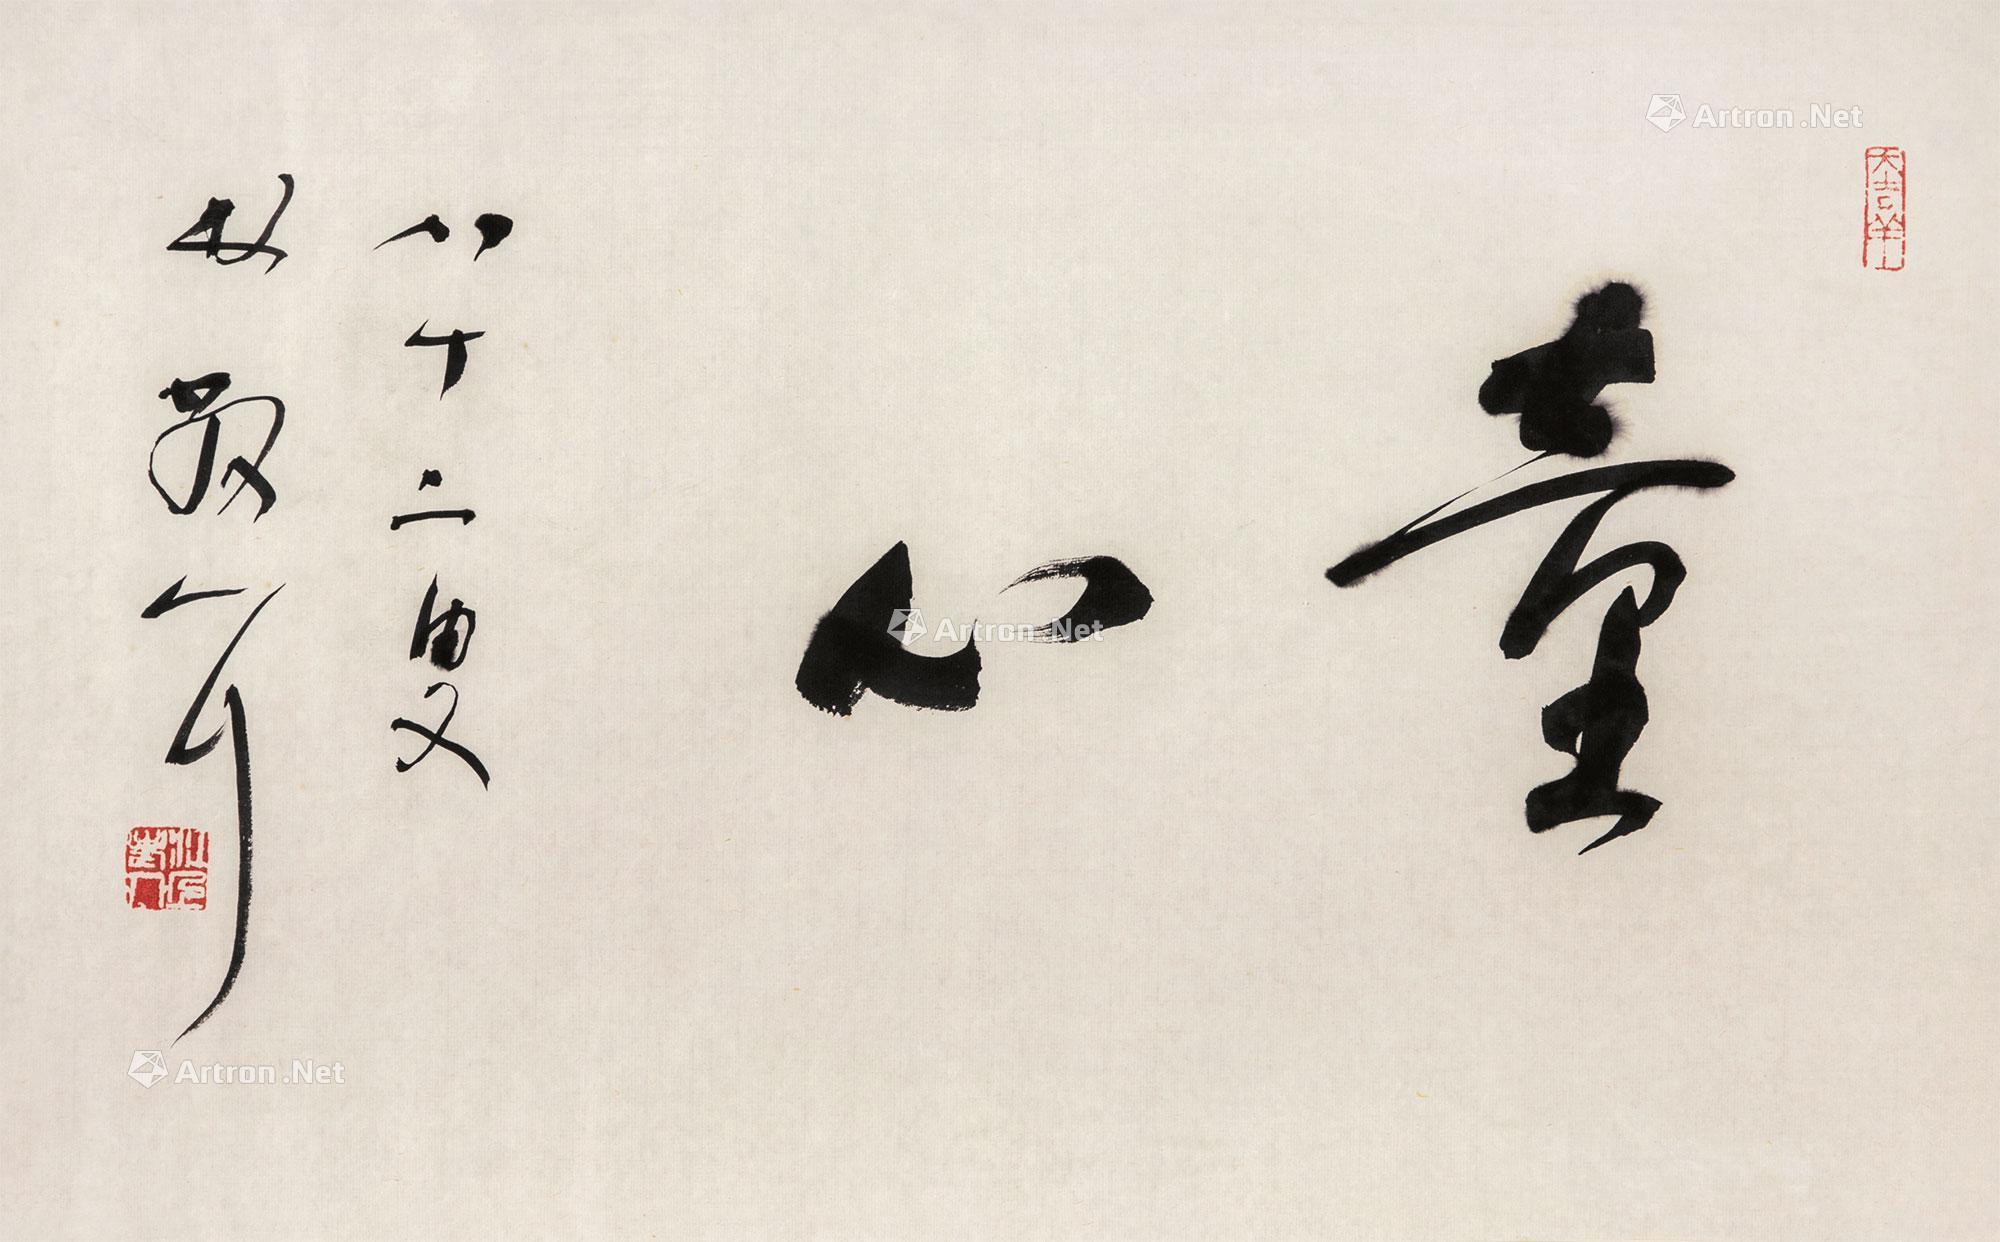 童心
八十二叟
林散之
Artron.Net
Artron.Net
Artron.Net